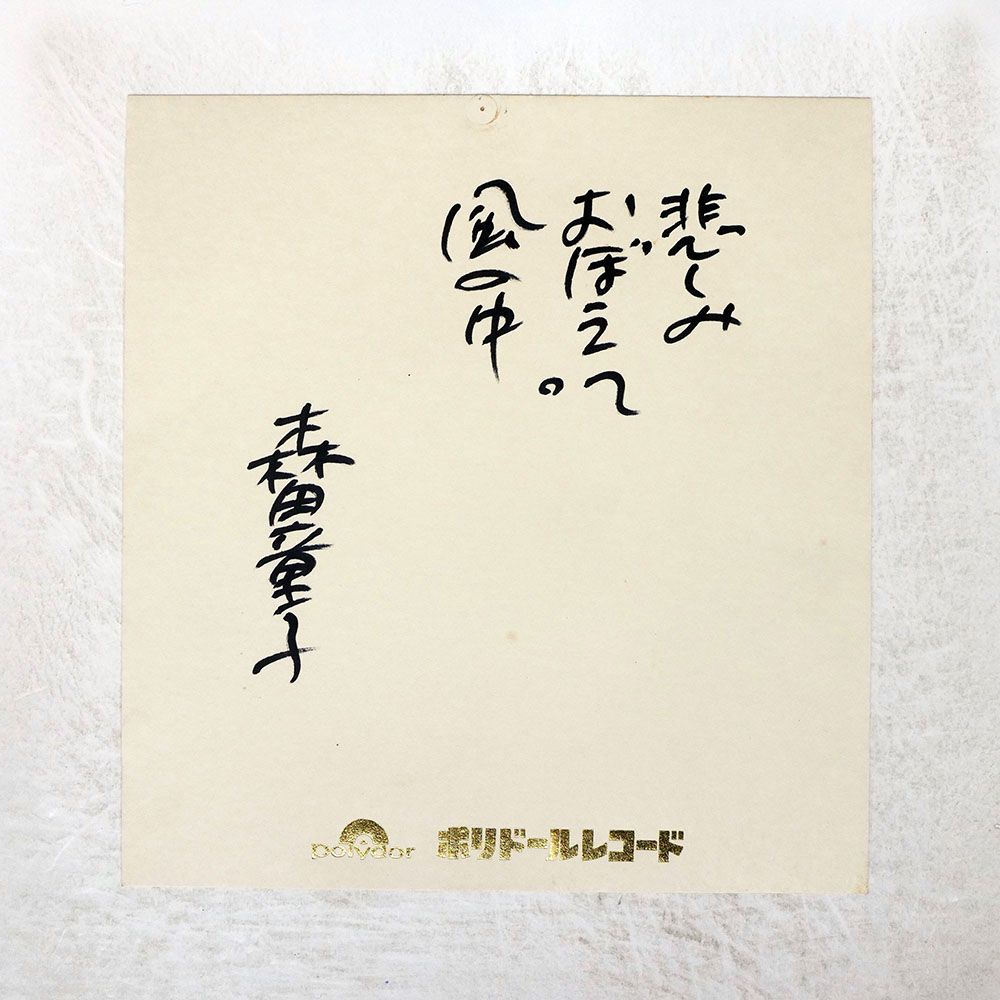 悲しみ
おぼえて。
風の中
森田童子
polydor ポリドールレコード